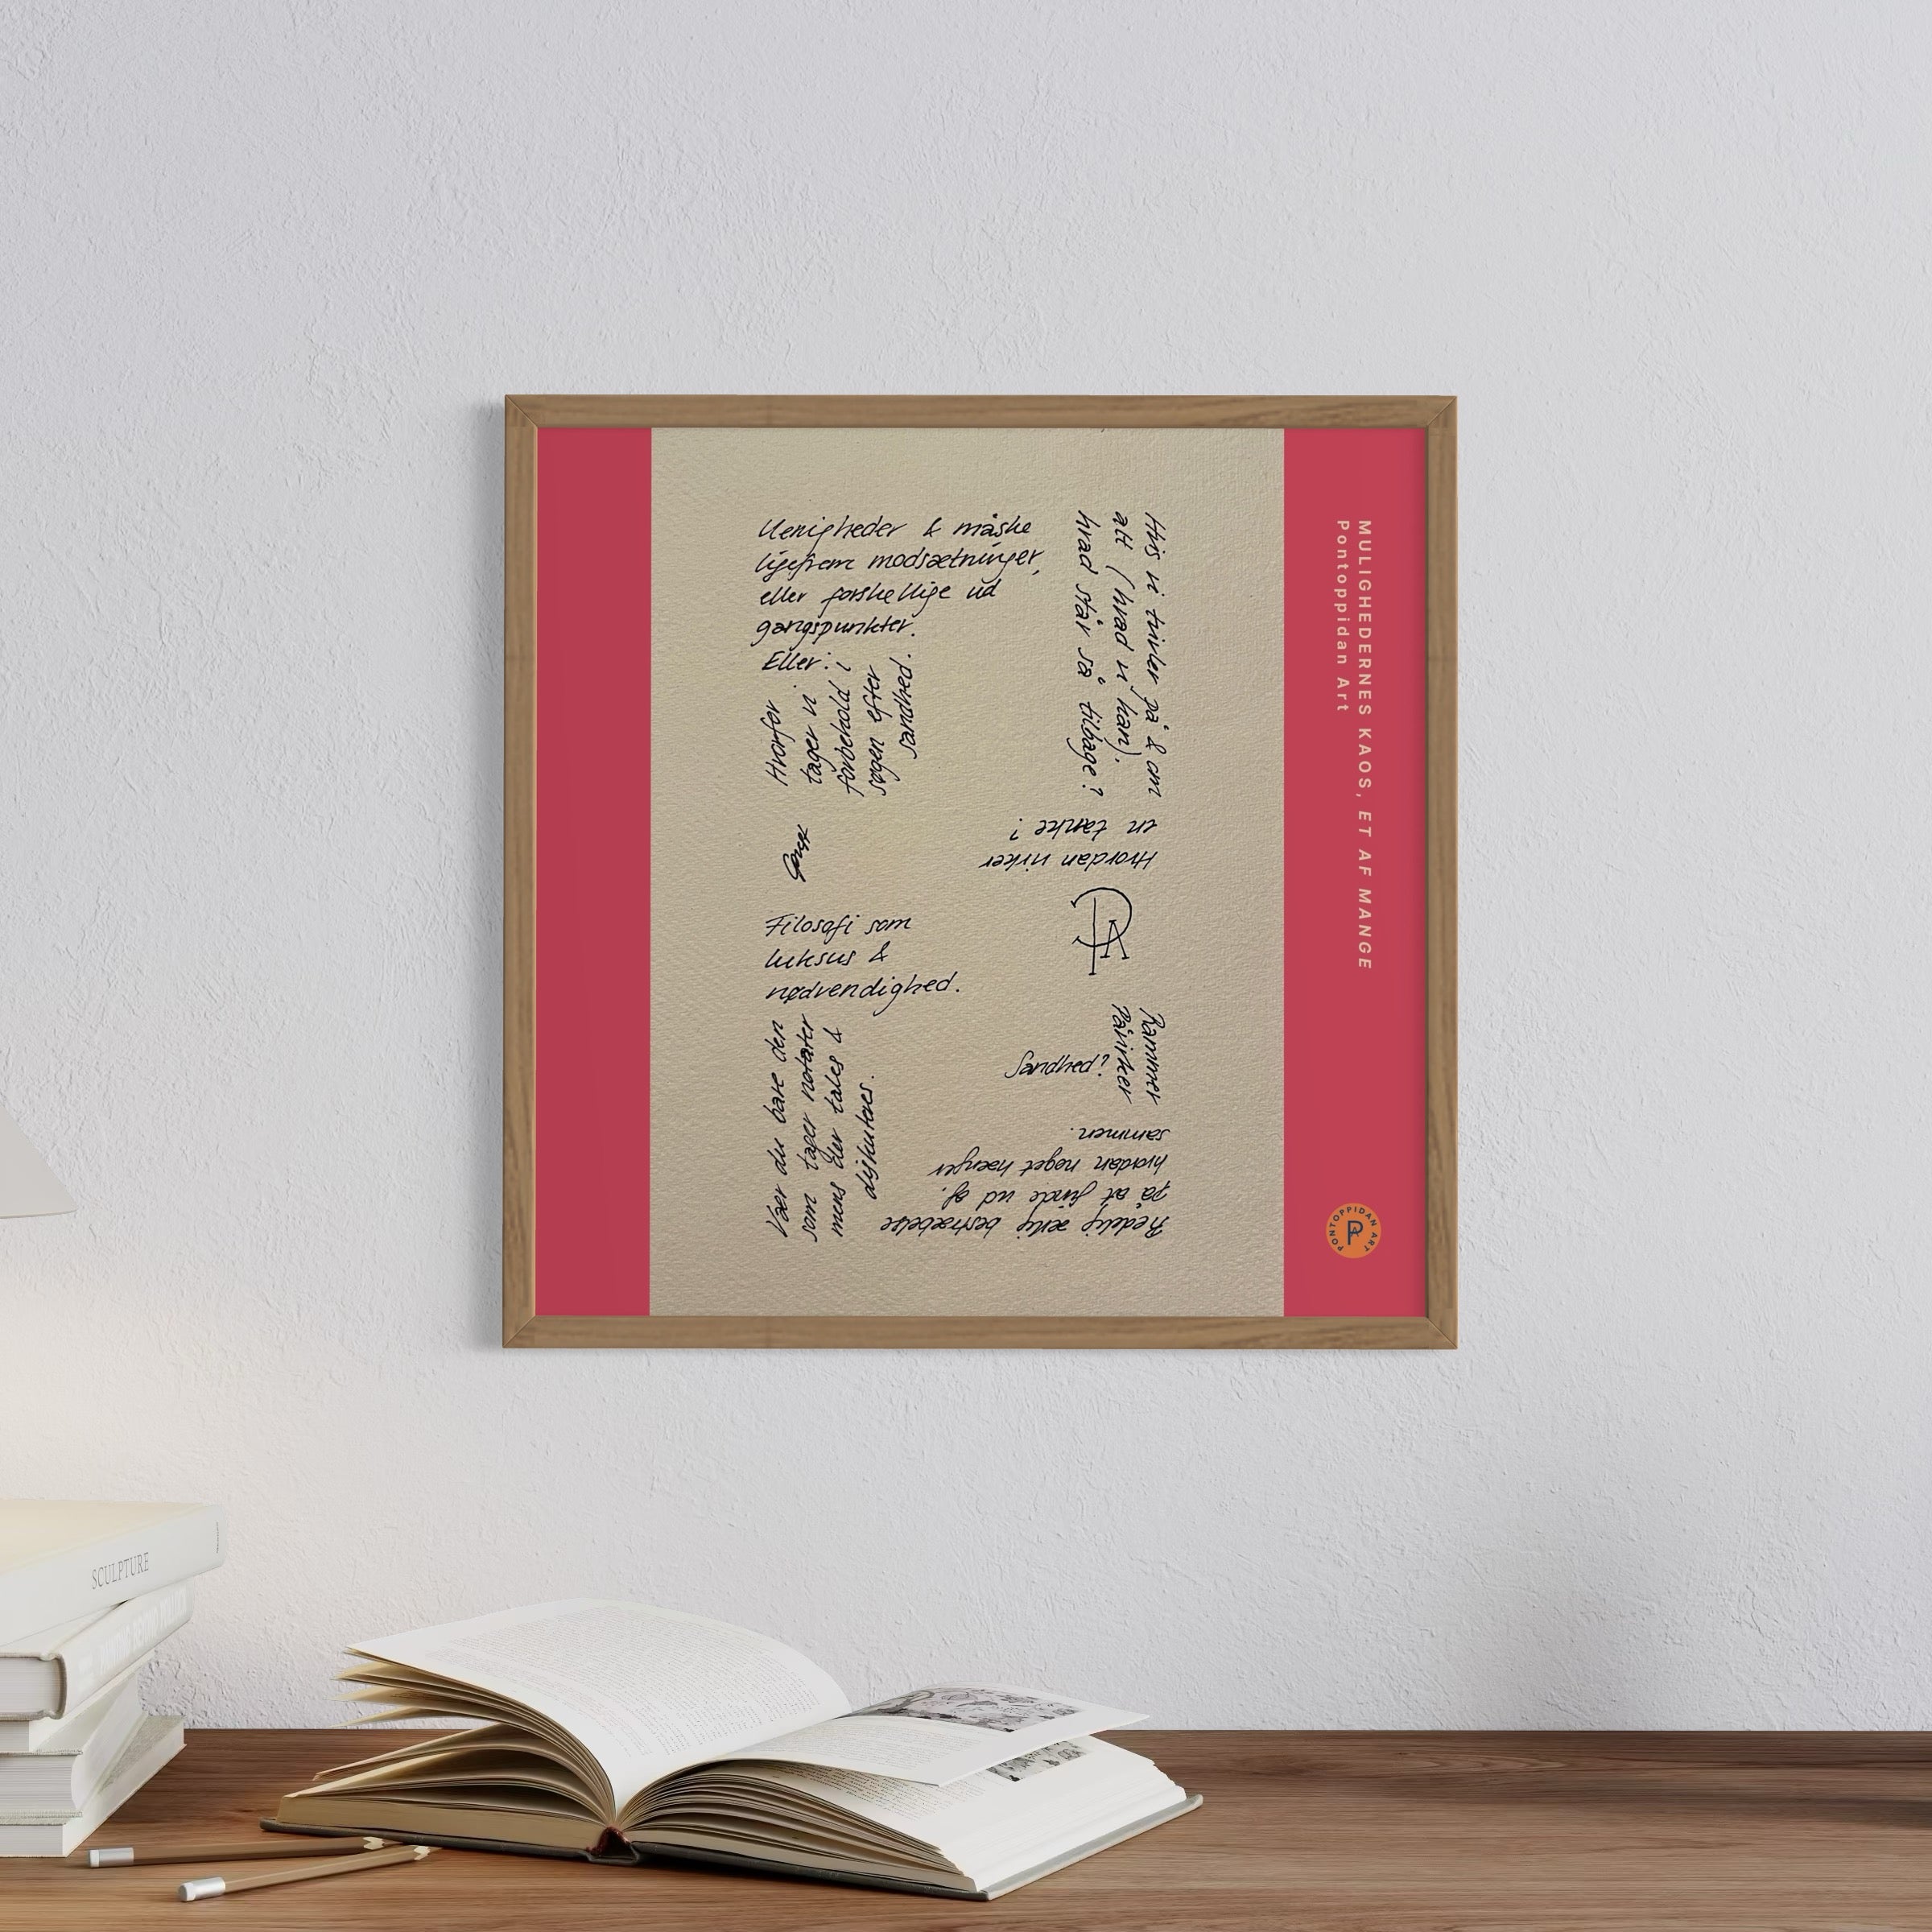 Uenigheder & måske
ligefrem modsætninger,
eller forskellige ud
gangspunkter.
Eller:
Hvorfor
tager vi
forbehold i
søgen efter
sandhed.
Hvis vi tvivler på & om
alt (hvad vi kan).
hvad står så tilbage?
Hvordan virker
en tanke?
Filosofi som
luksus &
nødvendighed.
Vær du bare den
som tager notater
mens der tales &
diskuteres.
Rammer
Påvirker
Sandhed?
Rædelig ærlig bestræbelse
på at finde ud af.
hvordan noget hænger
sammen.
MULIGHEDERNES KAOS, ET AF MANGE
Pontoppidan Art
PONTOPPIDAN ART
SCULPTURE